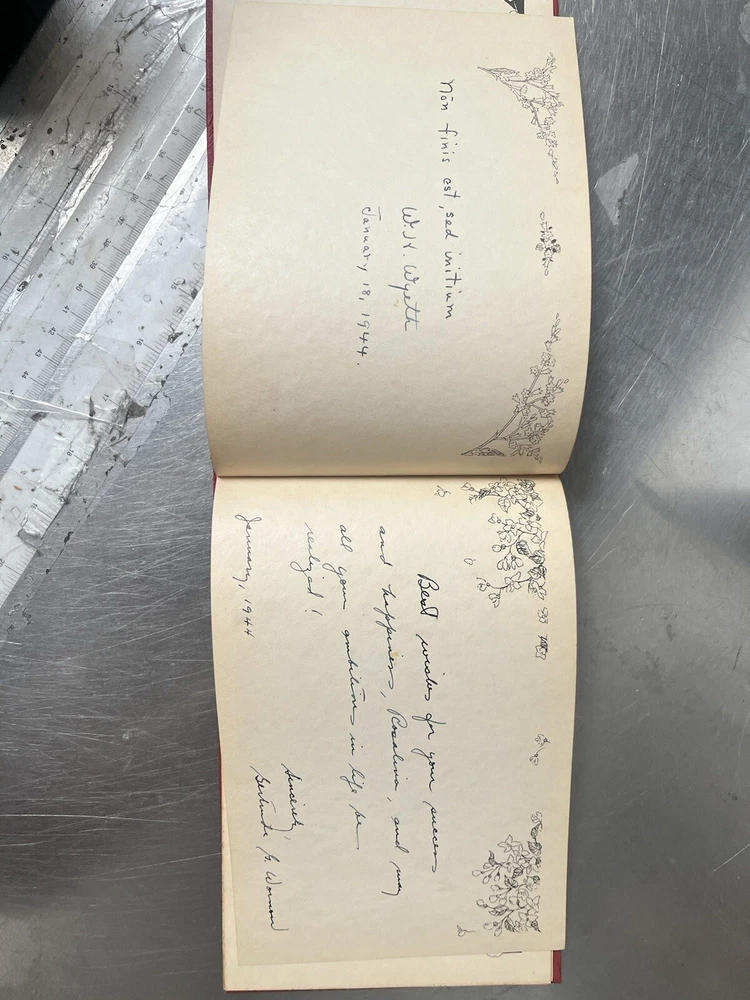 Non finis est, sed initium
W. H. Wyeth
January 18, 1944.
Best wishes for your success
and happiness, Rosalina, and may
all your ambitions in life be
realized!
Sincerely,
Gertrude
January, 1944